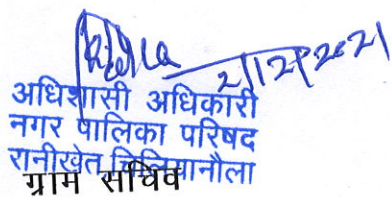 2/12/2021
अधिशासी अधिकारी
नगर पालिका परिषद
रानीखेत चिलियानौला
ग्राम सचिव